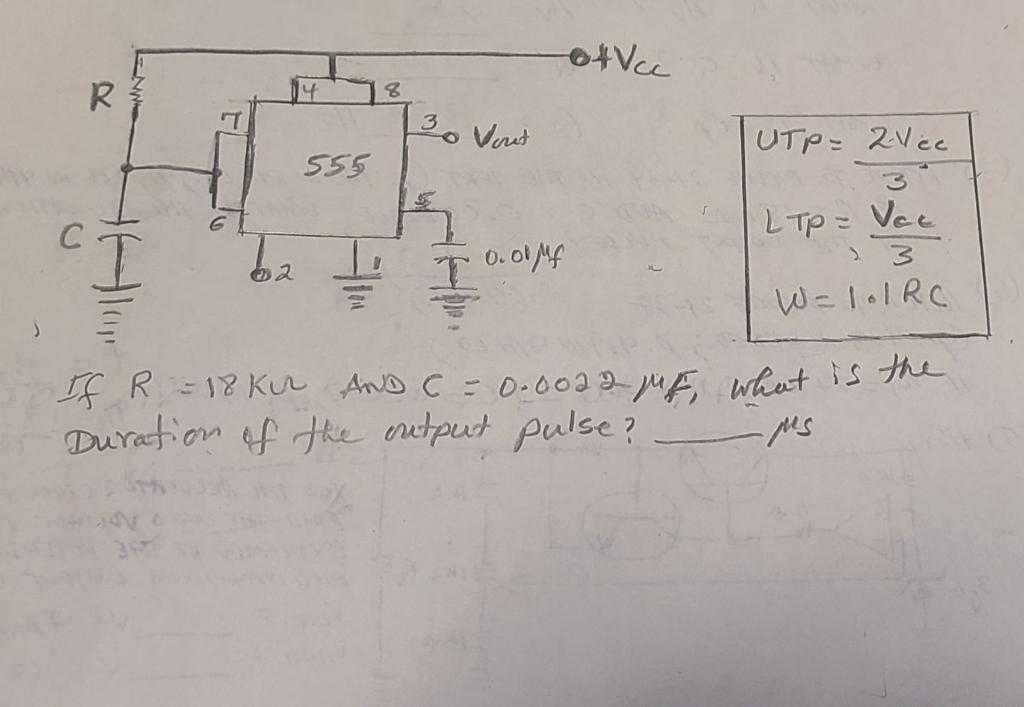 +Vcc
R
4 8
7
3 Vout
555
5
6
C
0.01μf
2
1
UTP = 2·Vcc
3
LTP = Vcc
3
W = 1.1RC
If R = 18 KΩ AND C = 0.0022 μF, what is the
Duration of the output pulse? ____ μs